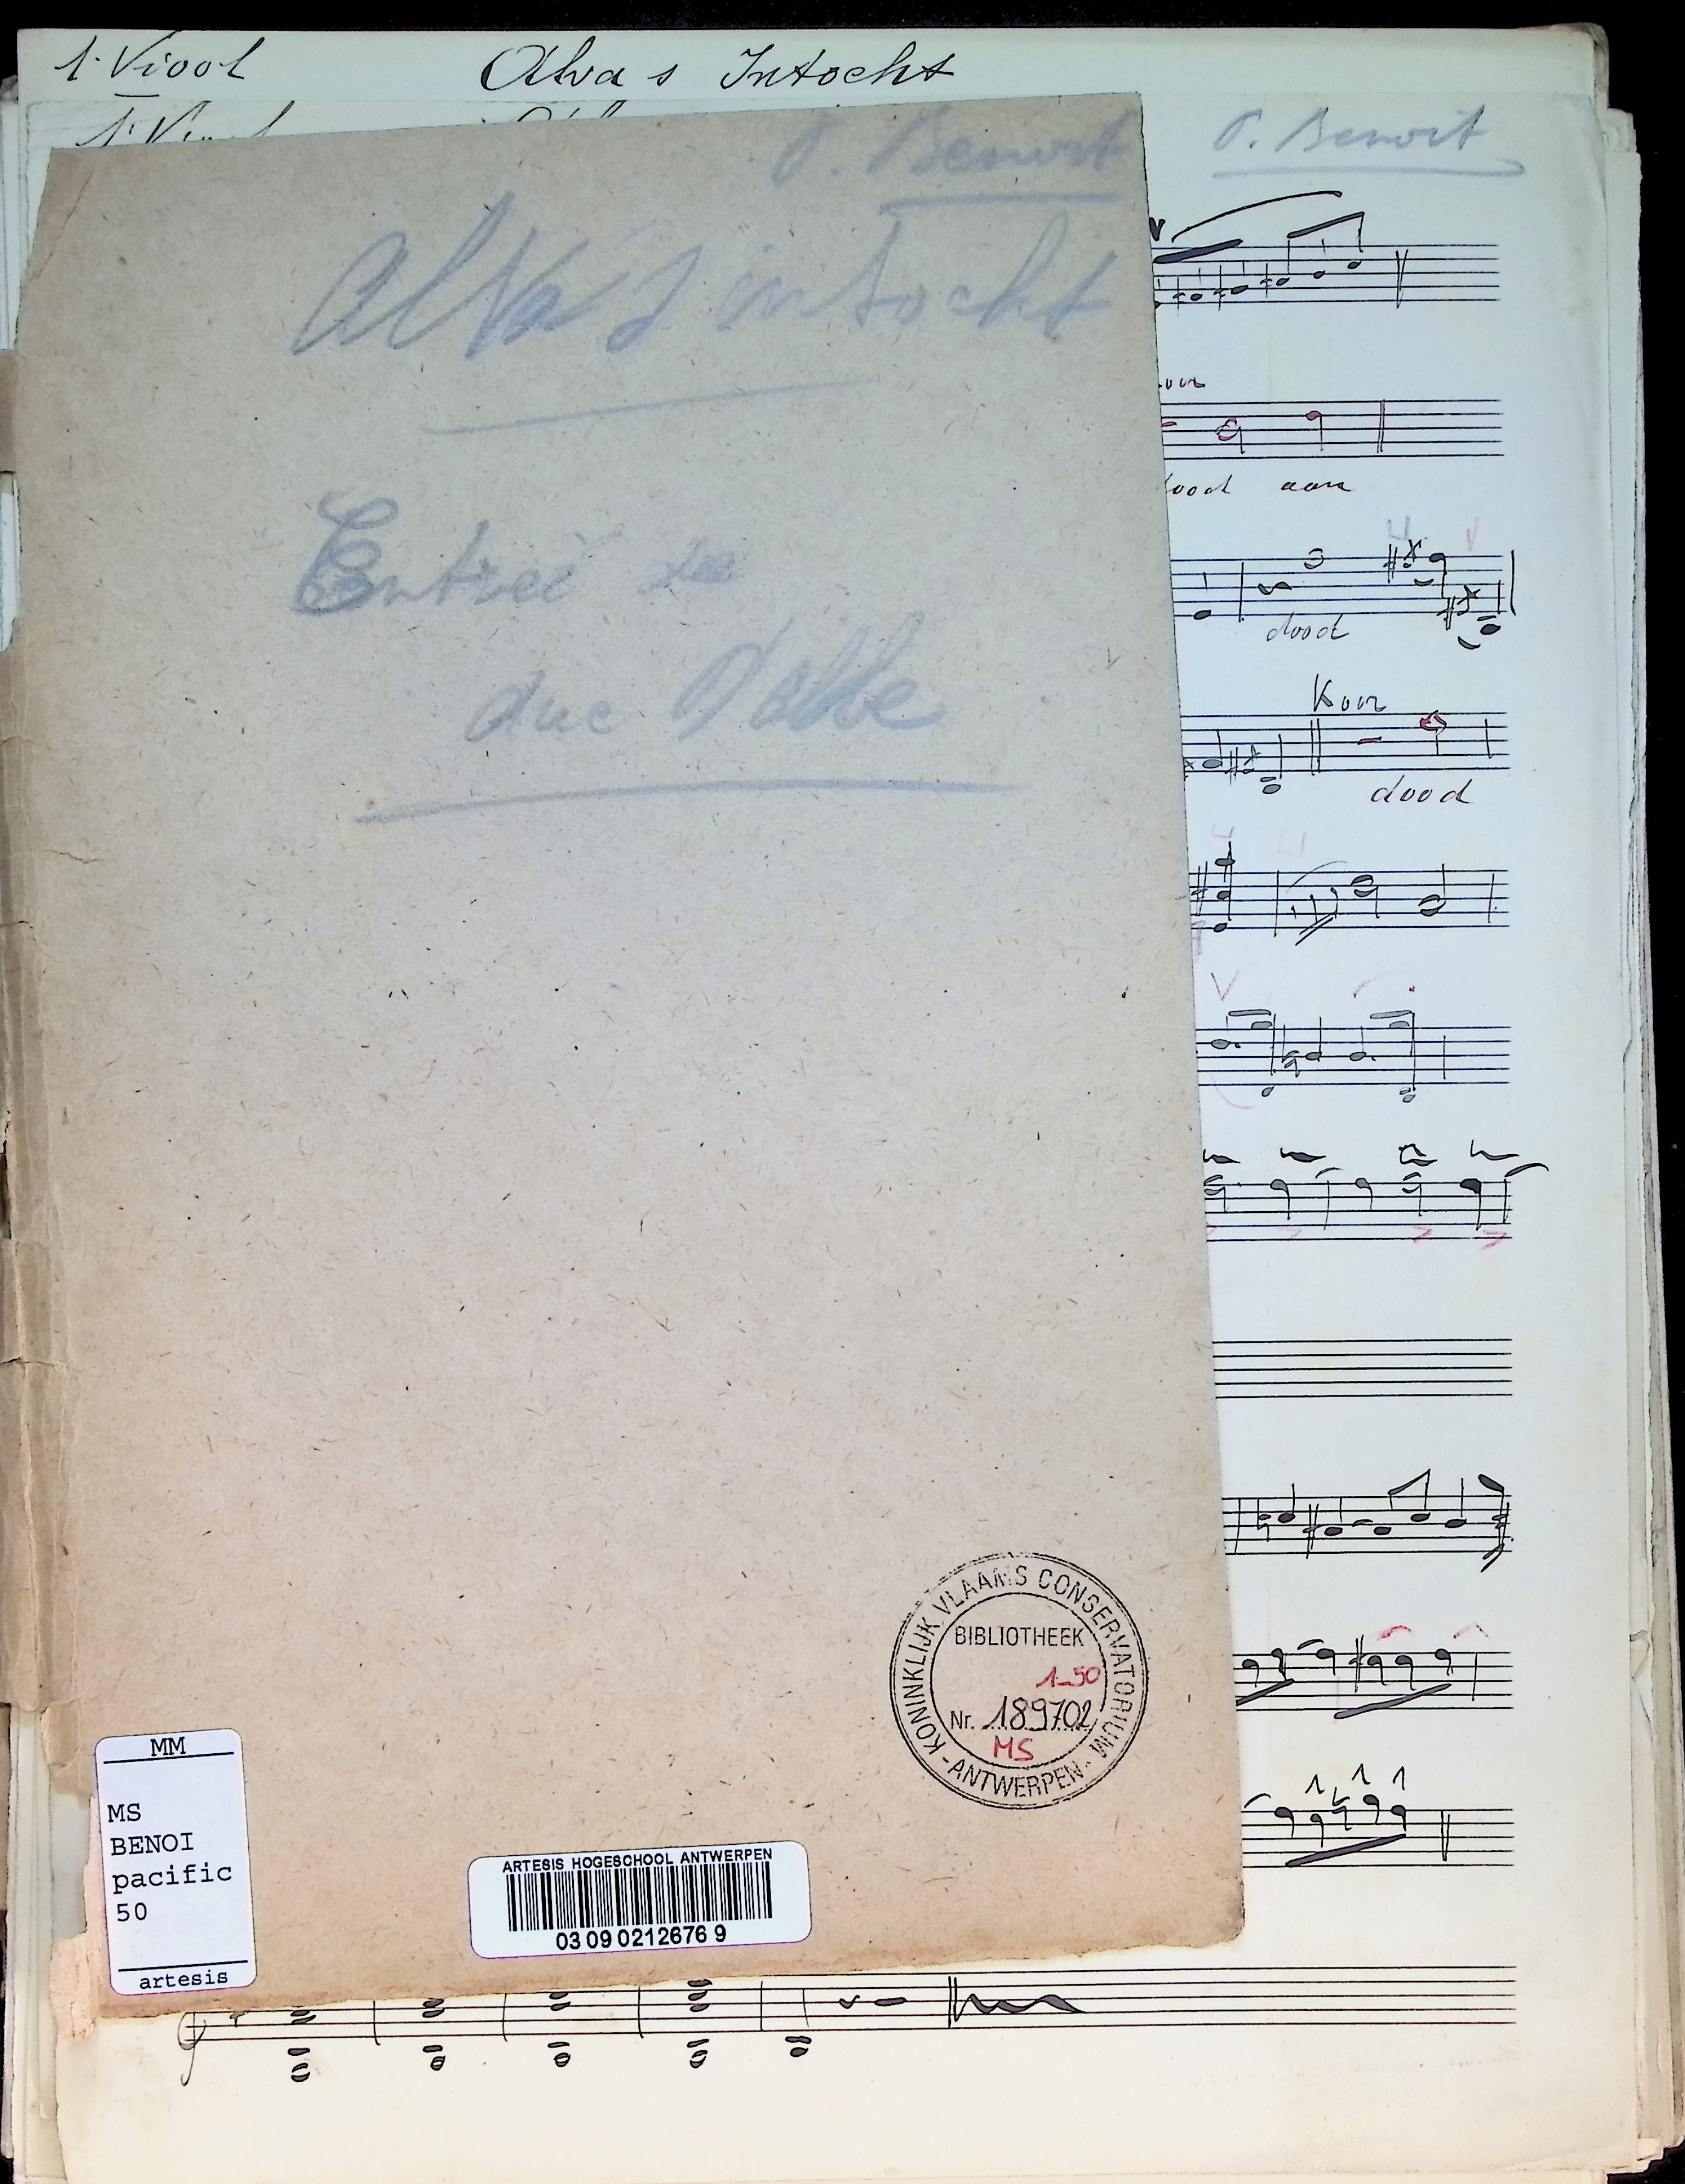 1e Viool Alva s Intocht
P. Benoit
P. Benoit
Alva's intocht
Entreé de
duc d'albe
dood aan
dood
Koor
dood
KONINKLIJK VLAAMS CONSERVATORIUM - ANTWERPEN -
BIBLIOTHEEK
1_50
Nr. 189702
MS
MM
MS
BENOI
pacific
50
artesis
ARTESIS HOGESCHOOL ANTWERPEN
03 09 0212676 9